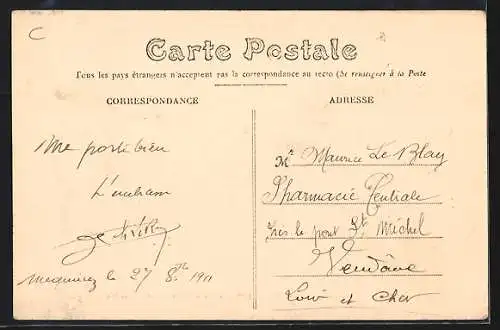 C
Carte Postale
Tous les pays étrangers n'acceptent pas la correspondance au recto (Se renseigner à la Poste
CORRESPONDANCE
ADRESSE
Me porte bien
Mr Maurice Le Blay
Pharmacie Centrale
Près le pont St Michel
le 27 8bre 1911
Vendôme
Loir et Cher